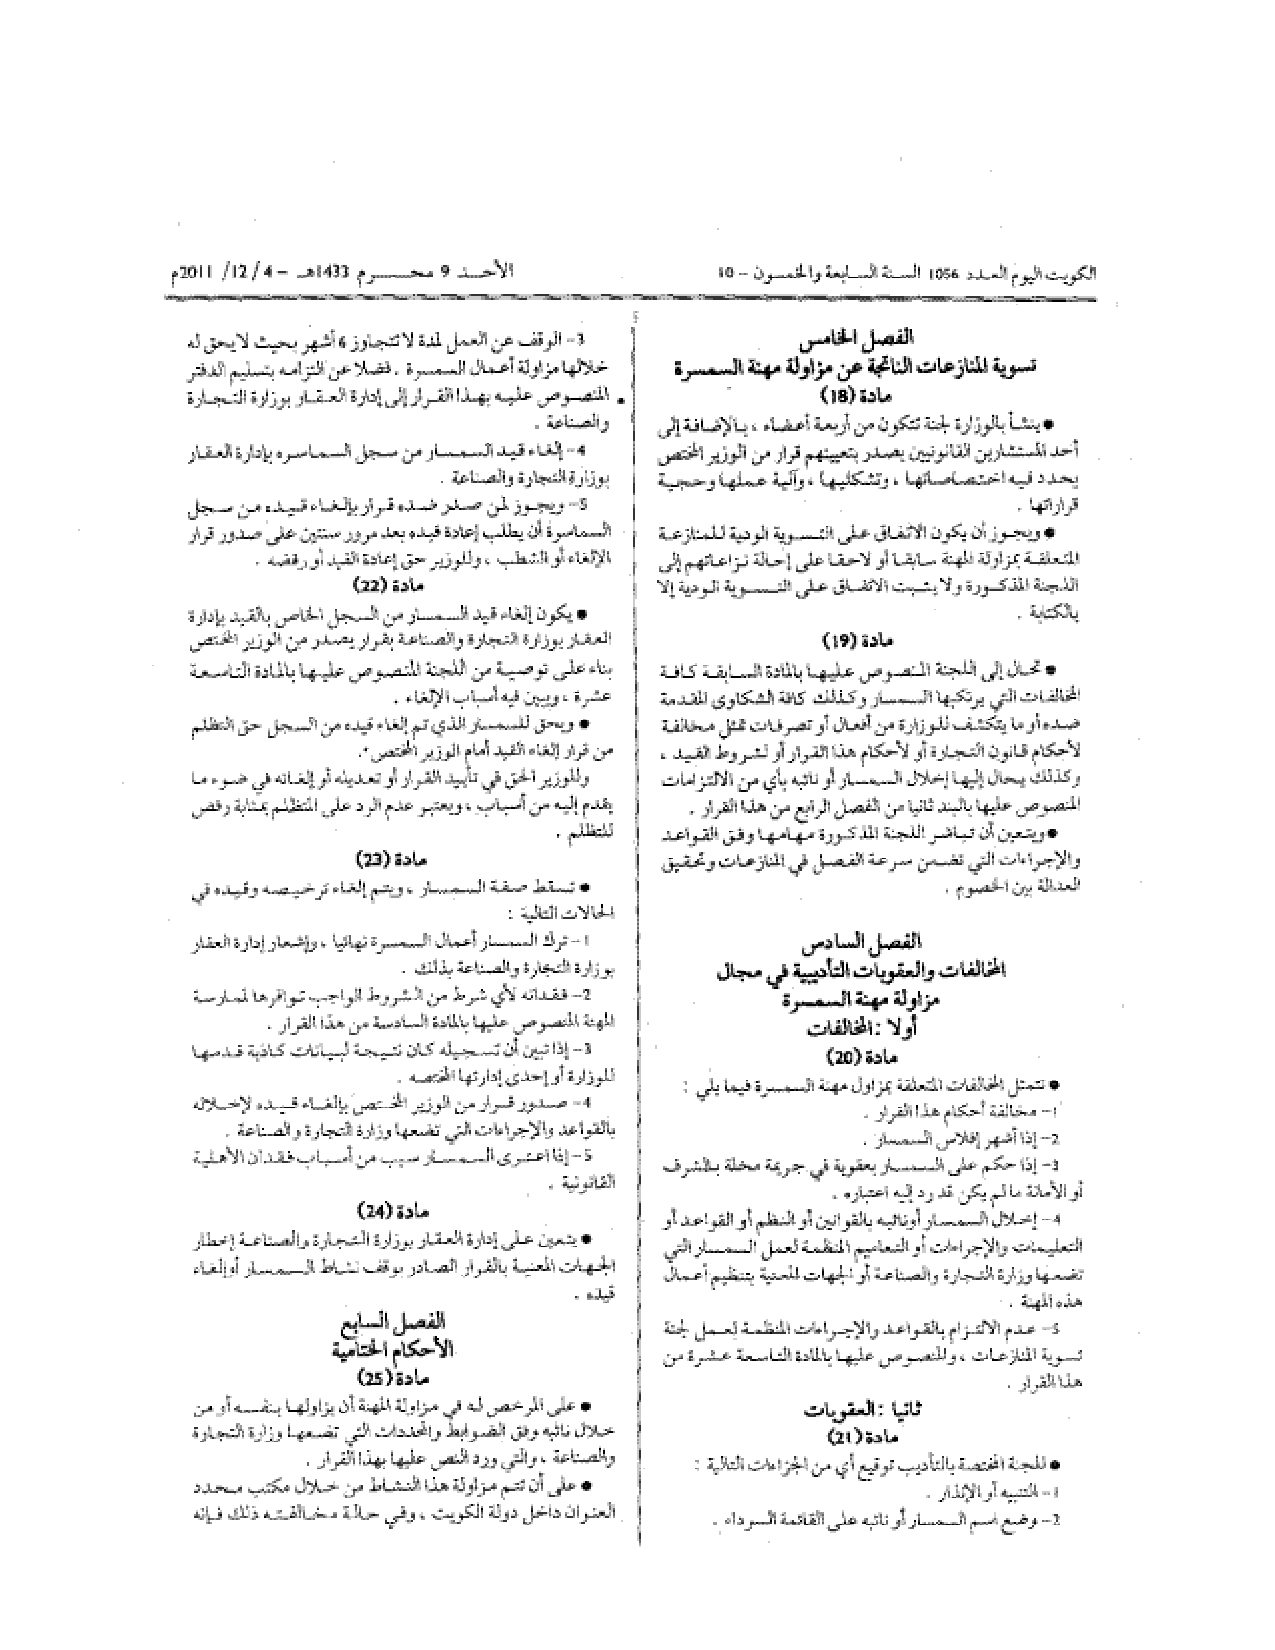 الكويت اليوم العدد 1056 السنة السابعة والخمسون - 10
الأحـــد 9 محـــــرم 1433هـ - 4 /12/ 2011م
الفصل الخامس
تسوية المنازعات الناتجة عن مزاولة مهنة السمسرة
مادة (18)
● ينشأ بالوزارة لجنة تتكون من أربعة أعضاء ، بالإضافة إلى
أحد المستشارين القانونيين يصدر بتعيينهم قرار من الوزير المختص
يحدد فيه اختصاصاتها ، وتشكليها ، وآلية عملها وحجية
قراراتها .
● ويجوز أن يكون الاتفاق على التسوية الودية للمنازعة
المتعلقة بمزاولة المهنة سابقا أو لاحقا على إحالة نزاعاتهم إلى
اللجنة المذكورة ولا يثبت الاتفاق على التسوية الودية إلا
بالكتابة .
مادة (19)
● تحال إلى اللجنة المنصوص عليها بالمادة السابقة كافة
المخالفات التي يرتكبها السمسار وكذلك كافة الشكاوى المقدمة
ضده أو ما يتكشف للوزارة من أفعال أو تصرفات تمثل مخالفة
لأحكام قانون التجارة أو لأحكام هذا القرار أو لشروط القيد ،
وكذلك يحال إليها إخلال السمسار أو نائبه بأي من الالتزامات
المنصوص عليها بالبند ثانيا من الفصل الرابع من هذا القرار .
● ويتعين أن تباشر اللجنة المذكورة مهامها وفق القواعد
والإجراءات التي تضمن سرعة الفصل في المنازعات وتحقيق
العدالة بين الخصوم .
الفصل السادس
المخالفات والعقوبات التأديبية في مجال
مزاولة مهنة السمسرة
أولا : المخالفات
مادة (20)
● تتمثل المخالفات المتعلقة بمزاول مهنة السمسرة فيما يلي :
1- مخالفة أحكام هذا القرار .
2- إذا أشهر إفلاس السمسار .
3- إذا حكم على السمسار بعقوبة في جريمة مخلة بالشرف
أو الأمانة ما لم يكن قد رد إليه اعتباره .
4- إخلال السمسار أونائبه بالقوانين أو النظم أو القواعد أو
التعليمات والإجراءات أو التعاميم المنظمة لعمل السمسار التي
تضعها وزارة التجارة والصناعة أو الجهات المعنية بتنظيم أعمال
هذه المهنة .
5- عدم الالتزام بالقواعد والإجراءات المنظمة لعمل لجنة
تسوية المنازعات ، والمنصوص عليها بالمادة التاسعة عشرة من
هذا القرار .
ثانيا : العقوبات
مادة (21)
● للجنة المختصة بالتأديب توقيع أي من الجزاءات التالية :
1- التنبيه أو الإنذار .
2- وضع اسم السمسار أو نائبه على القائمة السوداء .
3- الوقف عن العمل لمدة لا تتجاوز 6 أشهر بحيث لا يحق له
خلالها مزاولة أعمال السمسرة . فضلا عن التزامه بتسليم الدفتر
المنصوص عليه بهذا القرار إلى إدارة العقار بوزارة التجارة
والصناعة .
4- إلغاء قيد السمسار من سجل السماسره بإدارة العقار
بوزارة التجارة والصناعة .
5- ويجوز لمن صدر ضده قرار بإلغاء قيده من سجل
السماسرة أن يطلب إعادة قيده بعد مرور سنتين على صدور قرار
الإلغاء أو الشطب ، وللوزير حق إعادة القيد أو رفضه .
مادة (22)
● يكون إلغاء قيد السمسار من السجل الخاص بالقيد بإدارة
العقار بوزارة التجارة والصناعة بقرار يصدر من الوزير المختص
بناء على توصية من اللجنة المنصوص عليها بالمادة التاسعة
عشرة ، ويبين فيه أسباب الإلغاء .
● ويحق للسمسار الذي تم إلغاء قيده من السجل حق التظلم
من قرار إلغاء القيد أمام الوزير المختص .
وللوزير الحق في تأييد القرار أو تعديله أو إلغائه في ضوء ما
يقدم إليه من أسباب ، ويعتبر عدم الرد على المتظلم بمثابة رفض
للتظلم .
مادة (23)
● تسقط صفة السمسار ، ويتم إلغاء ترخيصه وقيده في
الحالات التالية :
1- ترك السمسار أعمال السمسرة نهائيا ، وإشعار إدارة العقار
بوزارة التجارة والصناعة بذلك .
2- فقدانه لأي شرط من الشروط الواجب توافرها لممارسة
المهنة المنصوص عليها بالمادة السادسة من هذا القرار .
3- إذا تبين أن تسجيله كان نتيجة لبيانات كاذبة قدمها
للوزارة أو إحدى إدارتها المختصه .
4- صدور قرار من الوزير المختص بإلغاء قيده لإخلاله
بالقواعد والإجراءات التي تضعها وزارة التجارة والصناعة .
5- إذا اعترى السمسار سبب من أسباب فقدان الأهلية
القانونية .
مادة (24)
● يتعين على إدارة العقار بوزارة التجارة والصناعة إخطار
الجهات المعنية بالقرار الصادر بوقف نشاط السمسار أو إلغاء
قيده .
الفصل السابع
الأحكام الختامية
مادة (25)
● على المرخص له في مزاولة المهنة أن يزاولها بنفسه أو من
خلال نائبه وفق الضوابط والمحددات التي تضعها وزارة التجارة
والصناعة ، والتي ورد النص عليها بهذا القرار .
● على أن تتم مزاولة هذا النشاط من خلال مكتب محدد
العنوان داخل دولة الكويت ، وفي حالة مخالفته ذلك فإنه